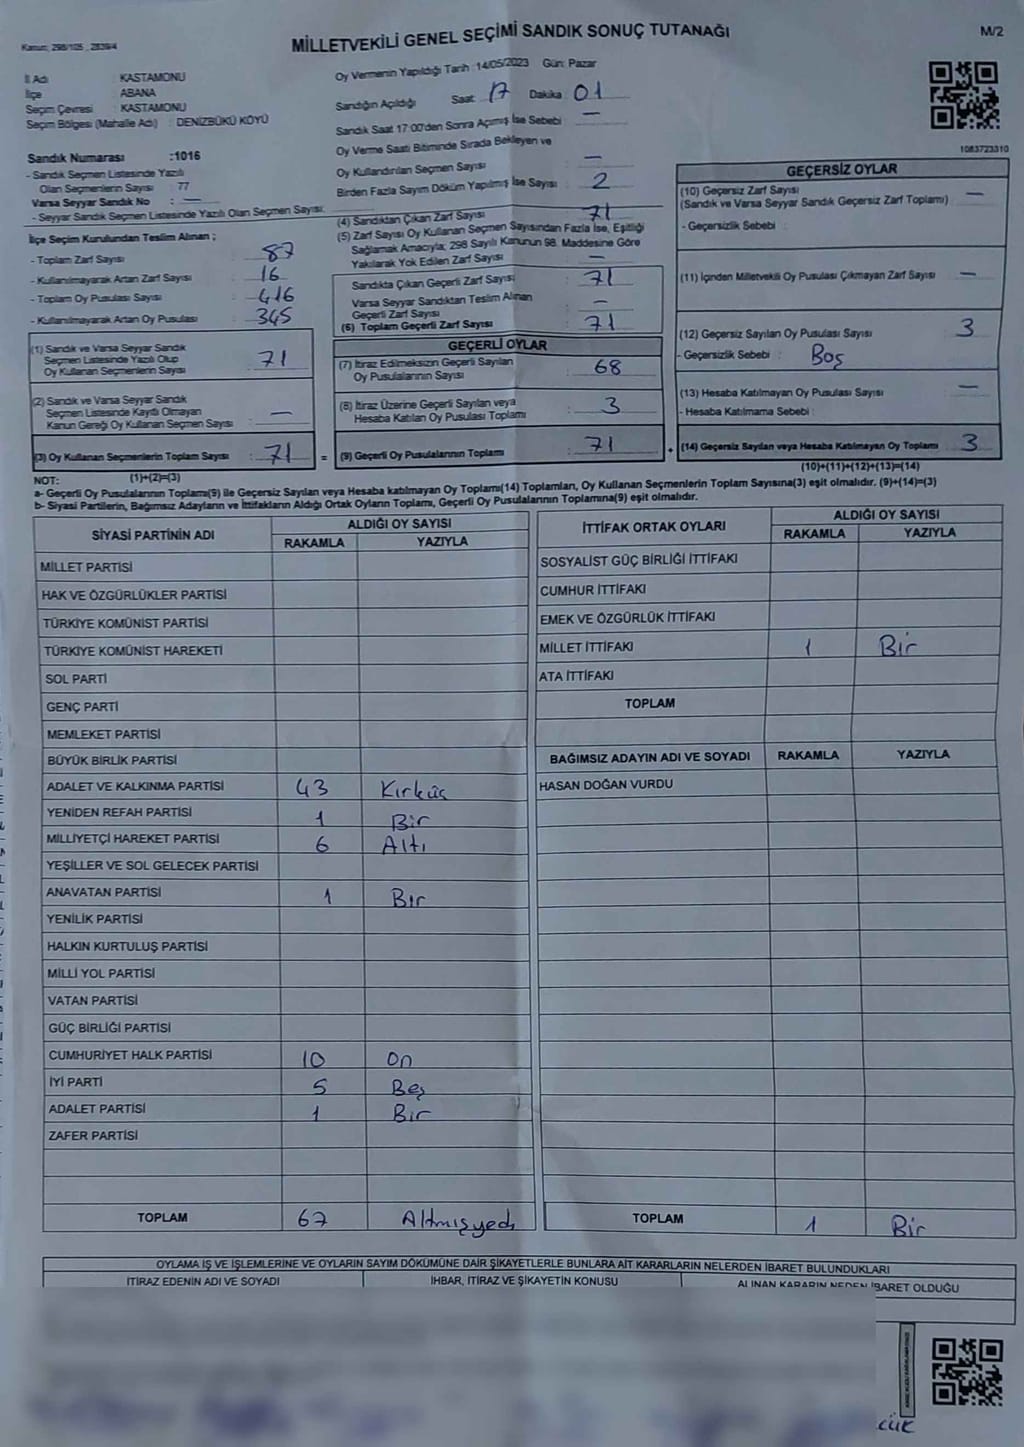 Kanun; 298/105 , 2839/4
MİLLETVEKİLİ GENEL SEÇİMİ SANDIK SONUÇ TUTANAĞI
M/2
İl Adı : KASTAMONU
İlçe : ABANA
Seçim Çevresi : KASTAMONU
Seçim Bölgesi (Mahalle Adı) : DENİZBÜKÜ KÖYÜ
Sandık Numarası :1016
- Sandık Seçmen Listesinde Yazılı
Olan Seçmenlerin Sayısı : 77
Varsa Seyyar Sandık No : —
- Seyyar Sandık Seçmen Listesinde Yazılı Olan Seçmen Sayısı:
İlçe Seçim Kurulundan Teslim Alınan ;
- Toplam Zarf Sayısı : 87
- Kullanılmayarak Artan Zarf Sayısı : 16
- Toplam Oy Pusulası Sayısı : 416
- Kullanılmayarak Artan Oy Pusulası : 345
(1) Sandık ve Varsa Seyyar Sandık
Seçmen Listesinde Yazılı Olup
Oy Kullanan Seçmenlerin Sayısı : 71
(2) Sandık ve Varsa Seyyar Sandık
Seçmen Listesinde Kayıtlı Olmayan
Kanun Gereği Oy Kullanan Seçmen Sayısı : —
(3) Oy Kullanan Seçmenlerin Toplam Sayısı : 71 =
(1)+(2)=(3)
Oy Vermenin Yapıldığı Tarih :14/05/2023 Gün: Pazar
Sandığın Açıldığı Saat : 17 Dakika : 01
Sandık Saat 17:00'den Sonra Açımış İse Sebebi : —
Oy Verme Saati Bitiminde Sırada Bekleyen ve
Oy Kullandırılan Seçmen Sayısı : —
Birden Fazla Sayım Döküm Yapılmış İse Sayısı : 2
(4) Sandıktan Çıkan Zarf Sayısı : 71
(5) Zarf Sayısı Oy Kullanan Seçmen Sayısından Fazla İse, Eşitliği
Sağlamak Amacıyla; 298 Sayılı Kanunun 98. Maddesine Göre
Yakılarak Yok Edilen Zarf Sayısı : —
Sandıkta Çıkan Geçerli Zarf Sayısı : 71
Varsa Seyyar Sandıktan Teslim Alınan
Geçerli Zarf Sayısı : —
(6) Toplam Geçerli Zarf Sayısı : 71
GEÇERLİ OYLAR
(7) İtiraz Edilmeksizin Geçerli Sayılan
Oy Pusulalarının Sayısı : 68
(8) İtiraz Üzerine Geçerli Sayılan veya
Hesaba Katılan Oy Pusulası Toplamı : 3
(9) Geçerli Oy Pusulalarının Toplamı : 71 +
1083723310
GEÇERSİZ OYLAR
(10) Geçersiz Zarf Sayısı : —
(Sandık ve Varsa Seyyar Sandık Geçersiz Zarf Toplamı)
- Geçersizlik Sebebi :
(11) İçinden Milletvekili Oy Pusulası Çıkmayan Zarf Sayısı : —
(12) Geçersiz Sayılan Oy Pusulası Sayısı : 3
- Geçersizlik Sebebi : Boş
(13) Hesaba Katılmayan Oy Pusulası Sayısı : —
- Hesaba Katılmama Sebebi :
(14) Geçersiz Sayılan veya Hesaba Katılmayan Oy Toplamı : 3
(10)+(11)+(12)+(13)=(14)
NOT:
a- Geçerli Oy Pusulalarının Toplamı(9) ile Geçersiz Sayılan veya Hesaba katılmayan Oy Toplamı(14) Toplamları, Oy Kullanan Seçmenlerin Toplam Sayısına(3) eşit olmalıdır. (9)+(14)=(3)
b- Siyasi Partilerin, Bağımsız Adayların ve İttifakların Aldığı Ortak Oyların Toplamı, Geçerli Oy Pusulalarının Toplamına(9) eşit olmalıdır.
SİYASİ PARTİNİN ADI ALDIĞI OY SAYISI
RAKAMLA YAZIYLA
MİLLET PARTİSİ
HAK VE ÖZGÜRLÜKLER PARTİSİ
TÜRKİYE KOMÜNİST PARTİSİ
TÜRKİYE KOMÜNİST HAREKETİ
SOL PARTİ
GENÇ PARTİ
MEMLEKET PARTİSİ
BÜYÜK BİRLİK PARTİSİ
ADALET VE KALKINMA PARTİSİ 43 Kırküç
YENİDEN REFAH PARTİSİ 1 Bir
MİLLİYETÇİ HAREKET PARTİSİ 6 Altı
YEŞİLLER VE SOL GELECEK PARTİSİ
ANAVATAN PARTİSİ 1 Bir
YENİLİK PARTİSİ
HALKIN KURTULUŞ PARTİSİ
MİLLİ YOL PARTİSİ
VATAN PARTİSİ
GÜÇ BİRLİĞİ PARTİSİ
CUMHURİYET HALK PARTİSİ 10 On
İYİ PARTİ 5 Beş
ADALET PARTİSİ 1 Bir
ZAFER PARTİSİ
TOPLAM 67 Altmışyedi
İTTİFAK ORTAK OYLARI ALDIĞI OY SAYISI
RAKAMLA YAZIYLA
SOSYALİST GÜÇ BİRLİĞİ İTTİFAKI
CUMHUR İTTİFAKI
EMEK VE ÖZGÜRLÜK İTTİFAKI
MİLLET İTTİFAKI 1 Bir
ATA İTTİFAKI
TOPLAM
BAĞIMSIZ ADAYIN ADI VE SOYADI RAKAMLA YAZIYLA
HASAN DOĞAN VURDU
TOPLAM 1 Bir
OYLAMA İŞ VE İŞLEMLERİNE VE OYLARIN SAYIM DÖKÜMÜNE DAİR ŞİKAYETLERLE BUNLARA AİT KARARLARIN NELERDEN İBARET BULUNDUKLARI
İTİRAZ EDENİN ADI VE SOYADI İHBAR, İTİRAZ VE ŞİKAYETİN KONUSU ALINAN KARARIN NEDEN İBARET OLDUĞU